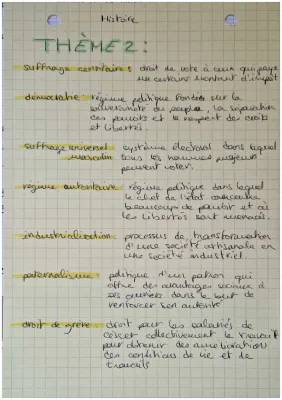 Histoire
THÈME 2 :
suffrage censitaire : droit de vote à ceux qui paye
un certains montant d'impôt
démocratie : régime politique fondés sur la
souveraineté du peuple, la séparation
des pouvoirs et le respect des droits
et libertés.
suffrage universel système électoral dans lequel
masculin tous les hommes majeurs
peuvent voter.
régime autoritaire régime politique dans lequel
le chef de l'état concentre
beaucoup de pouvoir et où
les libertés sont menacés.
industrialisation processus de transformation
d'une société artisanale en
une société industriel.
paternalisme politique d'un patron qui
offre des avantages sociaux à
ses ouvriers dans le but de
renforcer son autorité
droit de grève droit pour les salariés de
cesser collectivement le travail
pour obtenir des amélioration
des conditions de vie et de
travails